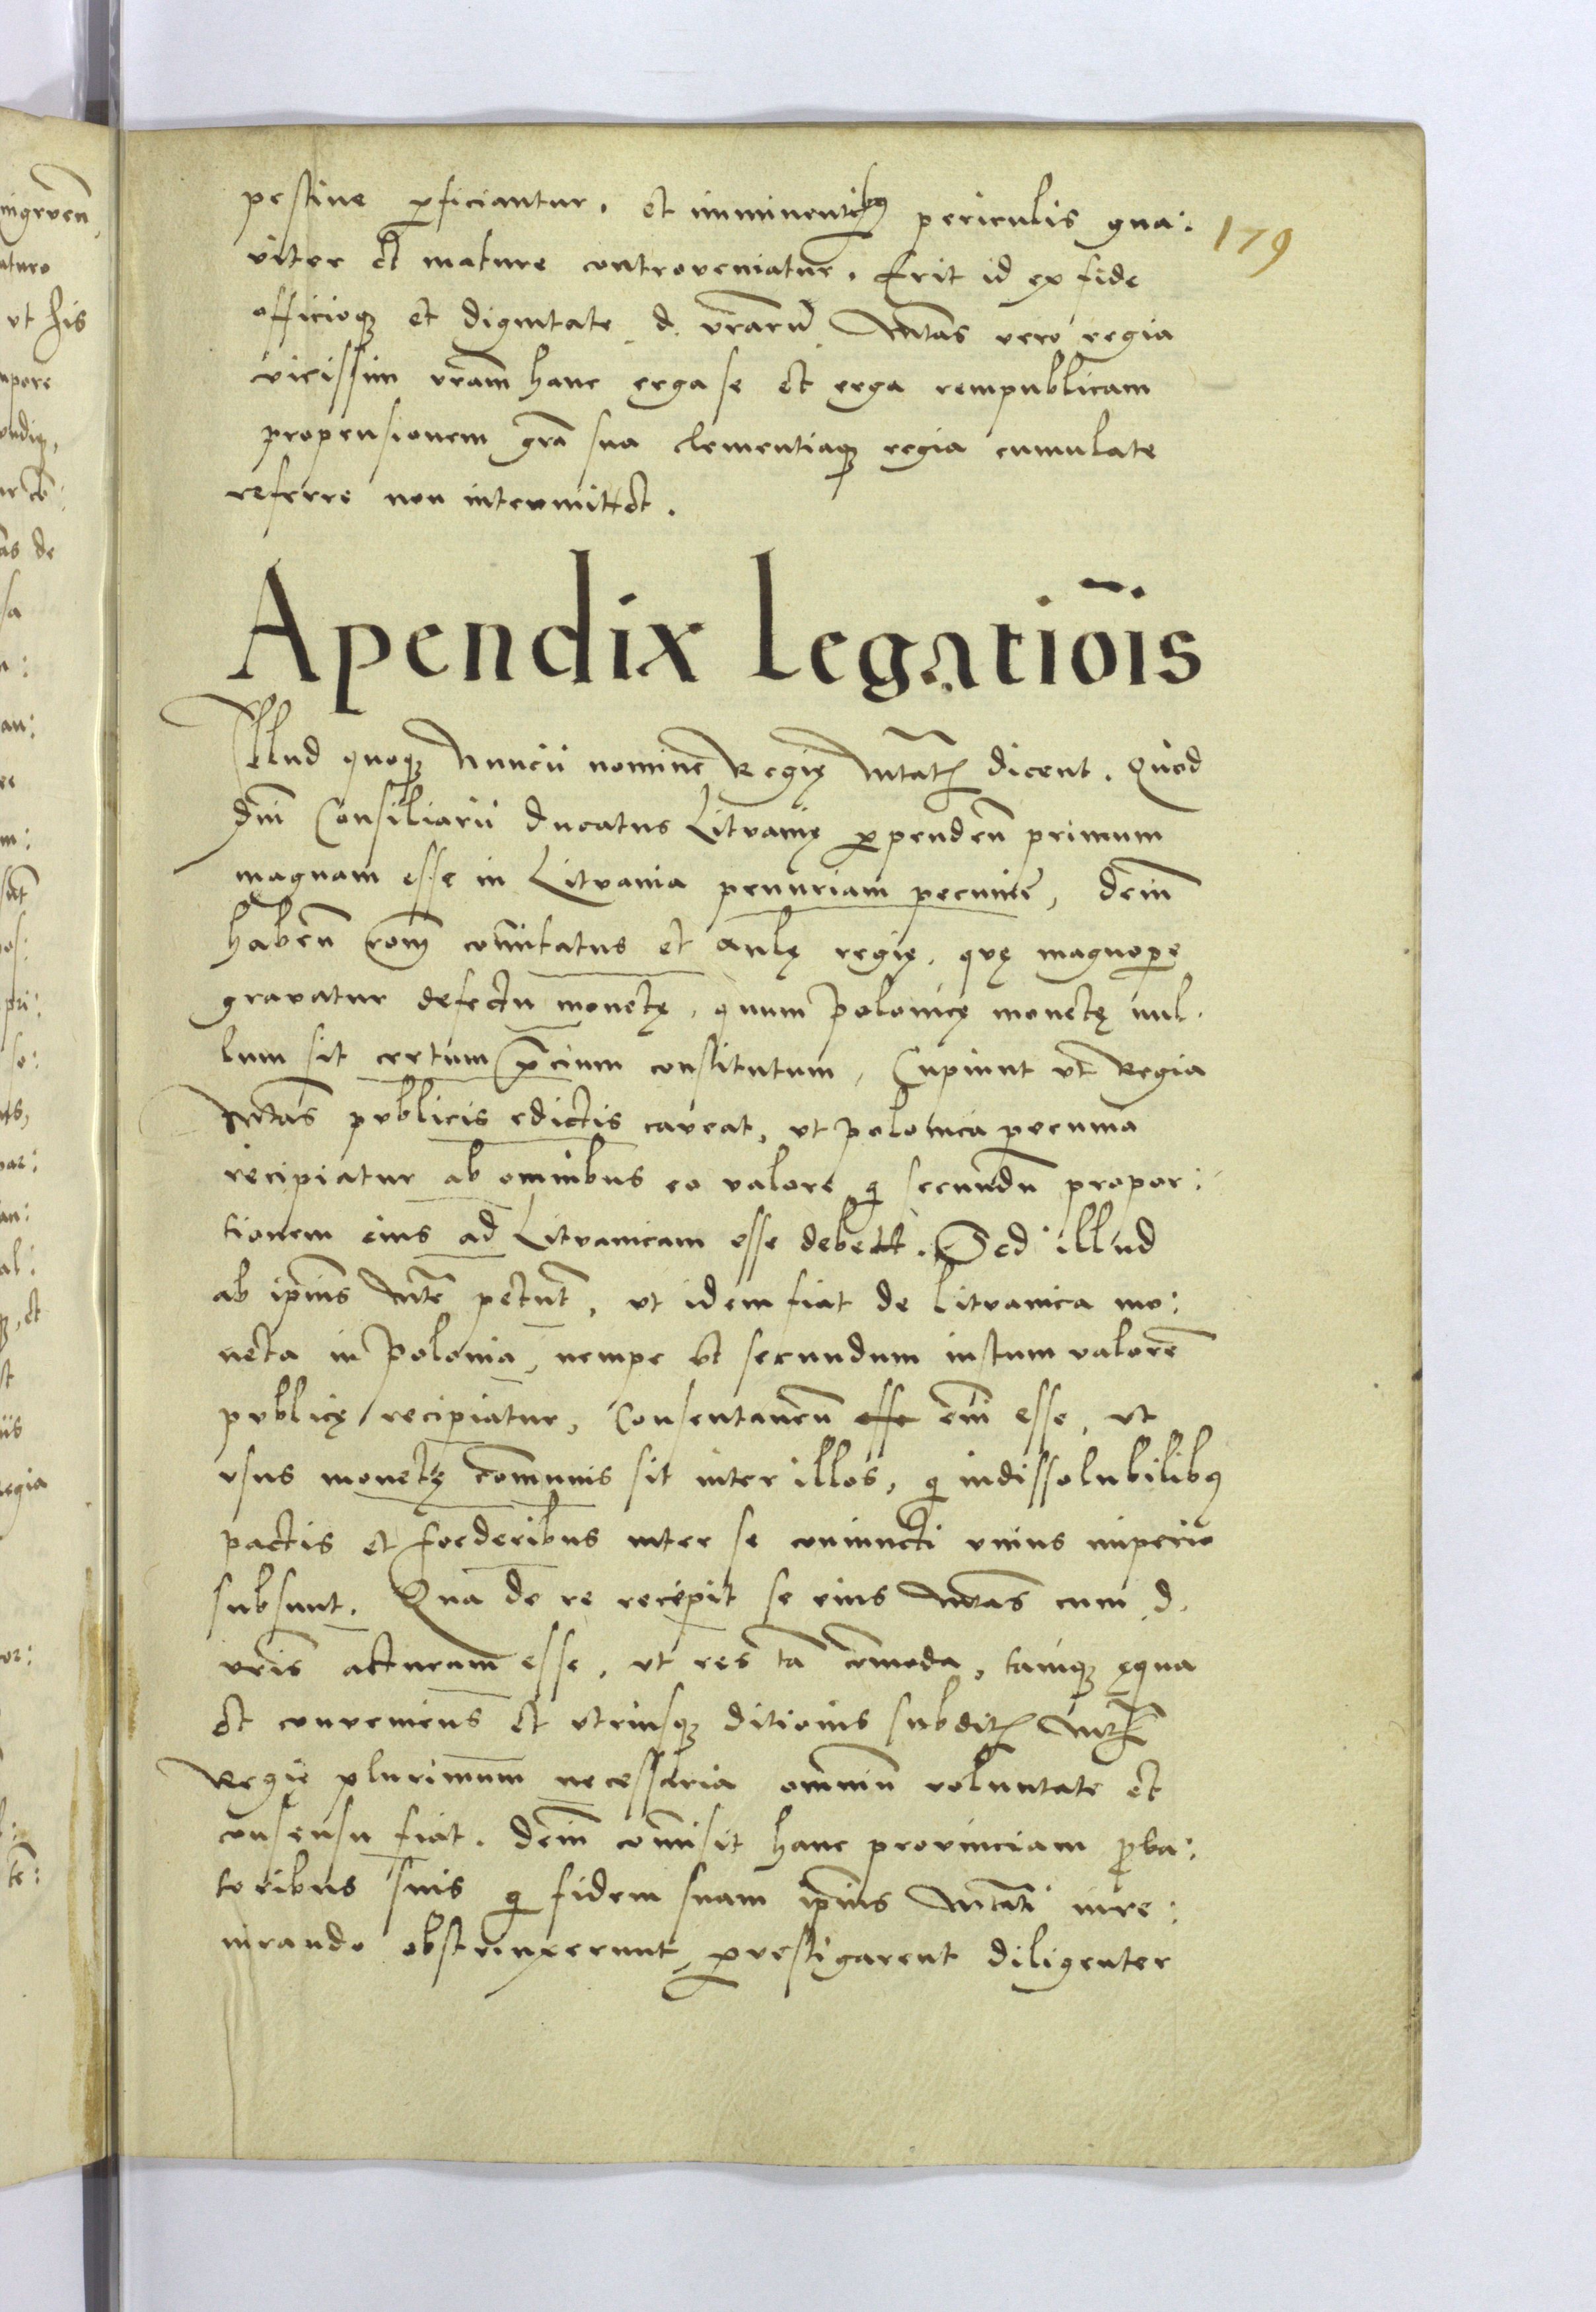 pestive perficiantur. et imminentibus periculis gna:
179
viter et mature controveniatur. Erit id ex fide
officioq; et dignitate d. vrarum. Mtas vero regia
vicissim vram hanc erga se et erga rempublicam
propensionem gra sua clementiaq; regia cumulate
referre non intermittet.
Apendix Legatiois
Illud quoq; Nuncii nomine Regię Mtatis dicent. Quod
dni Consiliarii Ducatus Litvanię perpenden primum
magnam esse in Litvania penuriam pecunie, dein
haben rom comitatus et aulę regię, quę magnopere
gravatur defectu monetę, quum Polonicę monetę nul
lum sit certum precium constitutum, Cupiunt ut Regia
Mtas publicis edictis caveat, ut polonica pecunia
recipiatur ab omnibus eo valore q secundu propor:
tionem eius ad Litvanicam esse debett. Sed illud
ab ipius Mte petunt, ut idem fiat de Litvanica mo:
neta in Polonia, nempe ut secundum iustum valore
publicę recipiatur, Consentaneu esse eni esse, ut
usus monetę communis sit inter illos, q indissolubilibus
pactis et foederibus inter se coniuncti unius imperio
subsunt. Qua de re recepit se eius Mtas cum d.
vris acturum esse, ut res ta comoda, tamq; ęqua
et conveniens et utriusq; ditionis subditis Mtis
Regię plurimum necessaria omniu voluntate et
consensu fiat. dein comisit hanc provinciam proba:
toribus suis q fidem suam ipius Mtati iure:
iurando obstrinxerunt, pervestigarent diligenter